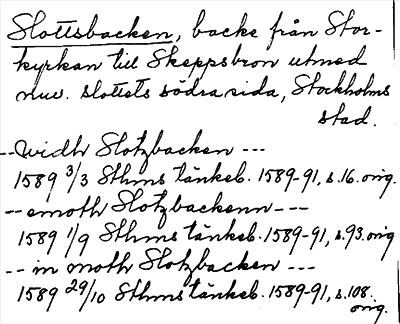 Slottsbacken, backe från Stor-
kyrkan till Skeppsbron utmed
nuv. slottets södra sida, Stockholms
stad.
--widh Slotzbacken ---
1589 3/3 Sthms tänkeb. 1589-91, s.16. orig.
--emoth Slotzbackenn---
1589 1/9 Sthms tänkeb. 1589-91, s.93. orig
-- in moth Slotzbacken ---
1589 29/10 Sthms tänkeb. 1589-91, s.108.
orig.